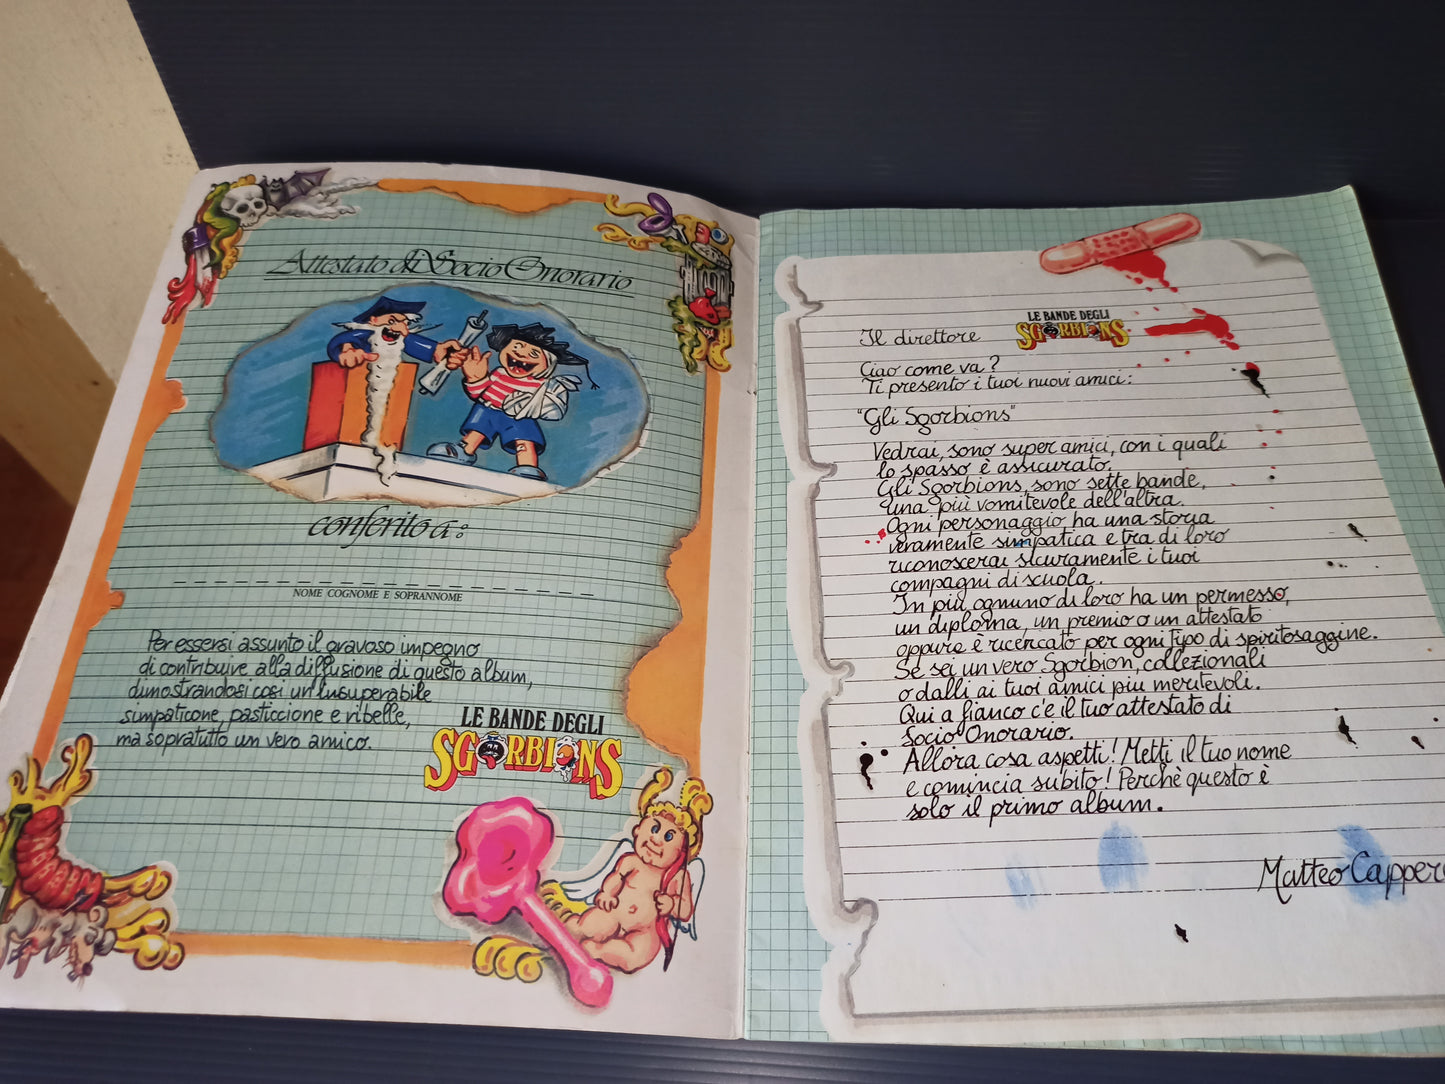 Attestato di Socio Onorario
conferito a:
NOME COGNOME E SOPRANNOME
Per essersi assunto il gravoso impegno
di contribuire alla diffusione di questo album,
dimostrandosi così un insuperabile
simpaticone, pasticcione e ribelle,
ma sopratutto un vero amico.
LE BANDE DEGLI
SGORBIONS
Il direttore
LE BANDE DEGLI
SGORBIONS
Ciao come va?
Ti presento i tuoi nuovi amici:
"Gli Sgorbions"
Vedrai, sono super amici, con i quali
lo spasso è assicurato.
Gli Sgorbions, sono sette bande,
una più vomitevole dell'altra.
Ogni personaggio ha una storia
veramente simpatica e tra di loro
riconoscerai sicuramente i tuoi
compagni di scuola.
In più ognuno di loro ha un permesso,
un diploma, un premio o un attestato
oppure è ricercato per ogni tipo di spiritosaggine.
Se sei un vero Sgorbion, collezionali
o dalli ai tuoi amici più meritevoli.
Qui a fianco c'è il tuo attestato di
Socio Onorario.
Allora cosa aspetti! Metti il tuo nome
e comincia subito! Perchè questo è
solo il primo album.
Matteo